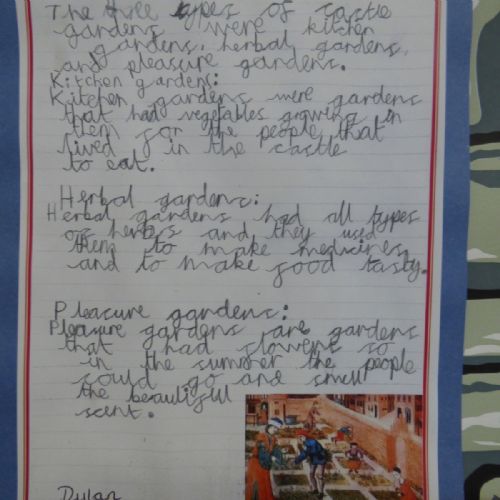 The three types of castle
gardens were kitchen
gardens, herbal gardens,
and pleasure gardens.
Kitchen gardens:
Kitchen gardens were gardens
that had vegetables growing in
them for the people that
lived in the castle
to eat.
Herbal gardens:
Herbal gardens had all types
of herbs and they used
them to make medicines
and to make food tasty.
Pleasure gardens:
Pleasure gardens are gardens
that had flowers so
in the summer the people
could go and smell
the beautiful
scent.
Dylan